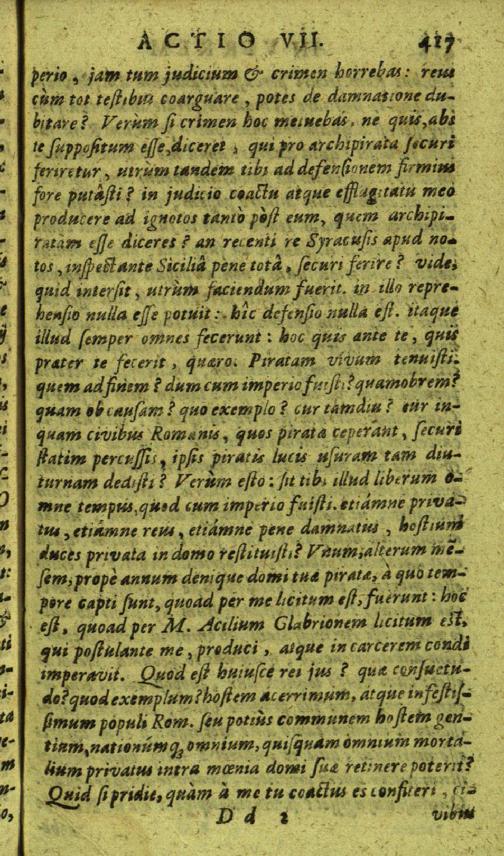 ACTIO VII. 417
perio, jam tum judicium & crimen horrebas: reus
cùm tot testibus coarguare, potes de damnatione du-
bitare? Verùm si crimen hoc metuebas, ne quis, abs
te suppositum esse, diceret, qui pro archipirata securi
feriretur, utrum tandem tibi ad defensionem firmius
fore putâsti? in judicio coactu atque efflagitatu meo
producere ad ignotos tanto pòst eum, quem archipi-
ratam esse diceres? an recenti re Syracusis apud no-
tos, inspectante Siciliâ pene totâ, securi ferire? vide,
quid intersit, utrùm faciendum fuerit. in illo repre-
hensio nulla esse potuit: hîc defensio nulla est. itaque
illud semper omnes fecerunt: hoc quis ante te, quis
præter te fecerit, quæro. Piratam vivum tenuisti:
quem ad finem? dum cum imperio fuisti? quamobrem?
quam ob causam? quo exemplo? cur tamdiu? cur in-
quam civibus Romanis, quos piratæ ceperant, securi
statim percussis, ipsis piratis lucis usuram tam diu-
turnam dedisti? Verùm esto: sit tibi illud liberum o-
mne tempus, quod cum imperio fuisti. etiámne priva-
tus, etiámne reus, etiámne pene damnatus, hostium
duces privata in domo restituisti? Vnum, alterum mē-
sem, propè annum denique domi tuæ piratæ, à quo tem-
pore capti sunt, quoad per me licitum est, fuerunt: hoc
est, quoad per M. Acilium Glabrionem licitum est,
qui postulante me, produci, atque in carcerem condi
imperavit. Quod est huiusce rei jus? quæ consuetu-
do? quod exemplum? hostem acerrimum, atque infestis-
simum populi Rom. seu potiùs communem hostem gen-
tium, nationúmq; omnium, quisquam omnium morta-
lium privatus intra mœnia domi suæ retinere poterit?
Quid si pridie, quàm à me tu coactus es confiteri, ci-
D d 2 vibus